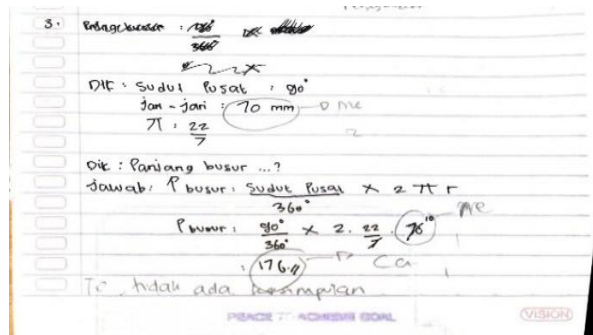 3. Panjang busur :
360°
Dik : Sudut Pusat : 90°
jari - jari : 70 mm me
π : 22/7
Dit : Panjang busur ...?
Jawab : P busur : Sudut Pusat / 360° × 2 π r
P busur : 90° / 360° × 2. 22/7 . 70 10 me
: 176,11 Ca
TC tidak ada kesimpulan
PEACE ACHIEVE GOAL
VISION